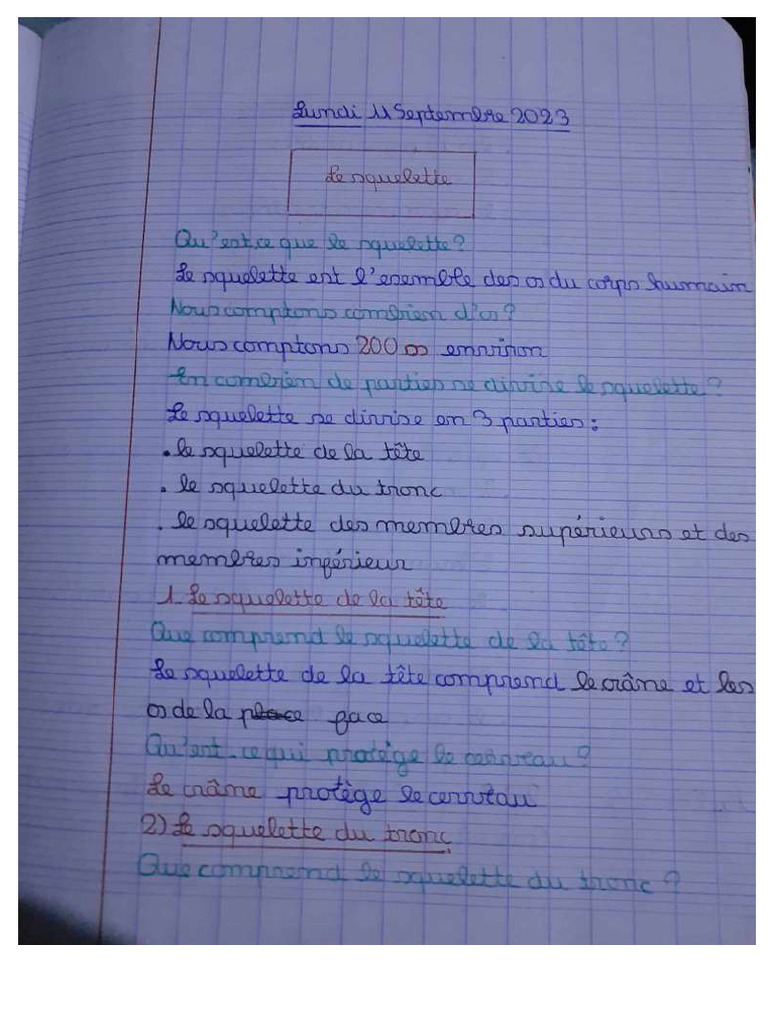 Lundi 11 Septembre 2023
Le squelette
Qu'est-ce que le squelette?
Le squelette est l'esemble des os du corps humain
Nous comptons combien d'os?
Nous comptons 200 os environ
En combien de parties se divise le squelette?
Le squelette se divise en 3 parties:
. le squelette de la tête
. le squelette du tronc
. le squelette des membres supérieurs et des
membres inférieur
1. Le squelette de la tête
Que comprend le squelette de la tête?
Le squelette de la tête comprend le crâme et les
os de la place face
Qu'est-ce qui protège le cerveau?
Le crâme protège le cerveau
2) Le squelette du tronc
Que comprend le squelette du tronc?